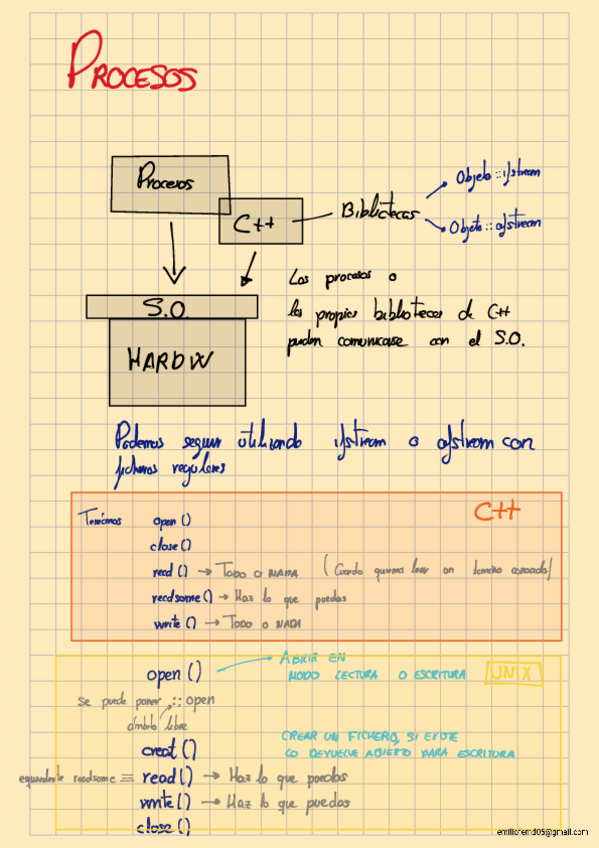 PROCESOS
Procesos
C++
Bibliotecas
Objeto :: ifstream
Objeto :: ofstream
S.O.
HARDW
Los procesos o
las propias bibliotecas de C++
pueden comunicarse con el S.O.
Podemos seguir utilizando ifstream o ofstream con
ficheros regulares
C++
Teníamos open ()
close ()
read () → TODO O NADA (Cuando queremos leer un tamaño conocido)
readsome () → Haz lo que puedas
write () → TODO O NADA
UNIX
open () ABRIR EN
MODO LECTURA O ESCRITURA
se puede poner :: open
ámbito libre
creat () CREAR UN FICHERO, SI EXISTE
LO DEVUELVE ABIERTO PARA ESCRITURA
equivalente readsome = read () → Haz lo que puedas
write () → Haz lo que puedas
close ()